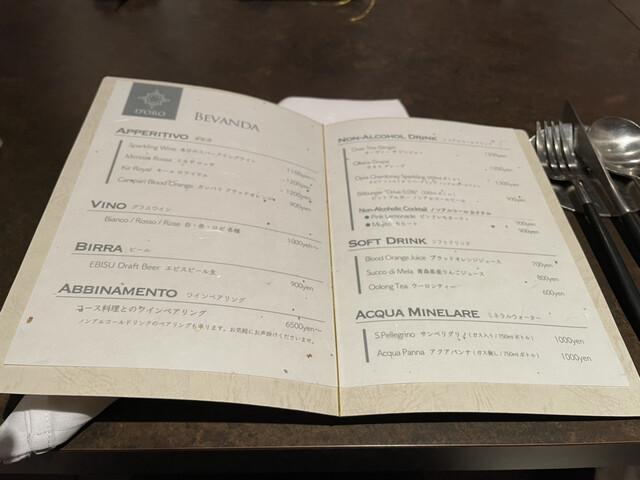 D'ORO
BEVANDA
APPERITIVO 食前酒
Sparkling Wine 本日のスパークリングワイン 1100yen
Mimosa Rossa ミモザロッサ 1200yen
Kir Royal キールロワイヤル 1200yen
Campari Blood Orange カンパリブラッドオレンジ 900yen
VINO グラスワイン
Bianco / Rosso / Rose 白・赤・ロゼ 各種 1000yen～
BIRRA ビール
EBISU Draft Beer エビスビール生 900yen
ABBINAMENTO ワインペアリング
コース料理とのワインペアリング 6500yen～
ノンアルコールドリンクのペアリングも承ります。お気軽にお声掛けくださいませ。
NON-ALCOHOL DRINK ノンアルコールドリンク
Over The Ginger
オーヴァージンジャー
Grape
グレープ
Opia Chardonnay Sparkling 1300yen
Bitburger "Drive 0.0%"
ビットブルガー ノンアルコールビール 900yen
Non-Alcoholic Cocktail ノンアルコールカクテル
● Pink Lemonade ピンクレモネード 900yen
● Mojito モヒート 900yen
SOFT DRINK ソフトドリンク
Blood Orange Juice ブラッドオレンジジュース 700yen
Succo di Mela 青森県産りんごジュース 800yen
Oolong Tea ウーロンティー 600yen
ACQUA MINELARE ミネラルウォーター
S.Pellegrino サンペリグリノ (ガス入り/750mlボトル) 1000yen
Acqua Panna アクアパンナ (ガス無し/750mlボトル) 1000yen